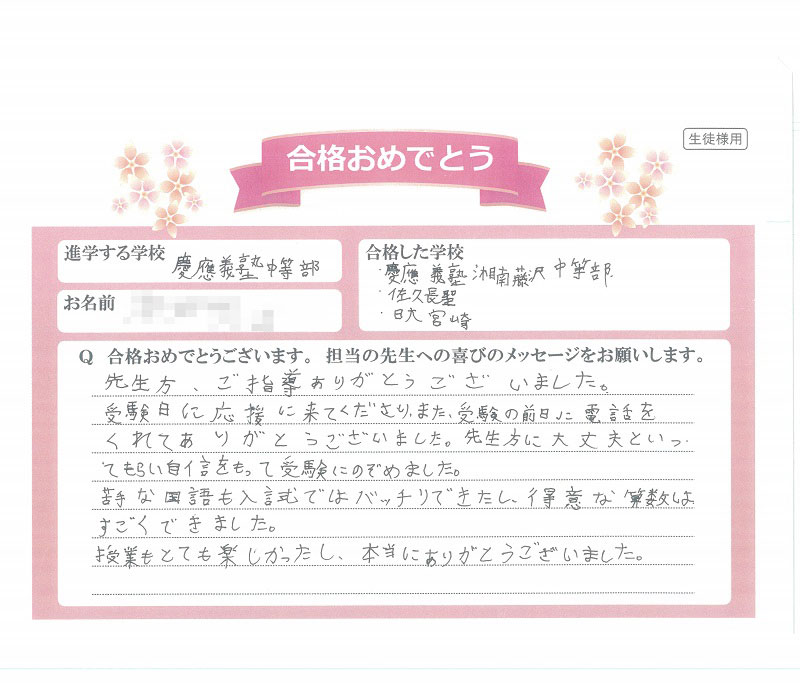 生徒様用
合格おめでとう
進学する学校
慶應義塾中等部
合格した学校
・慶應義塾湘南藤沢中等部
・佐久長聖
・日大宮崎
お名前
Q 合格おめでとうございます。担当の先生への喜びのメッセージをお願いします。
先生方、ご指導ありがとうございました。
受験日に応援に来てくださり、また、受験の前日に電話を
くれてありがとうございました。先生方に大丈夫といっ
てもらい自信をもって受験にのぞめました。
苦手な国語も入試ではバッチリできたし、得意な算数は
すごくできました。
授業もとても楽しかったし、本当にありがとうございました。